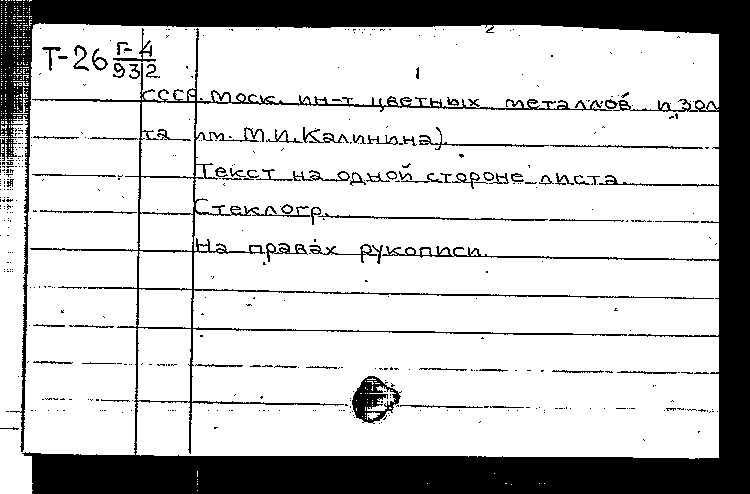 2
Т-26 Г-4
93 2
1
СССР. Моск. ин-т цветных металлов и зол
та им. М.И.Калинина).
Текст на одной стороне листа.
Стеклогр.
На правах рукописи.